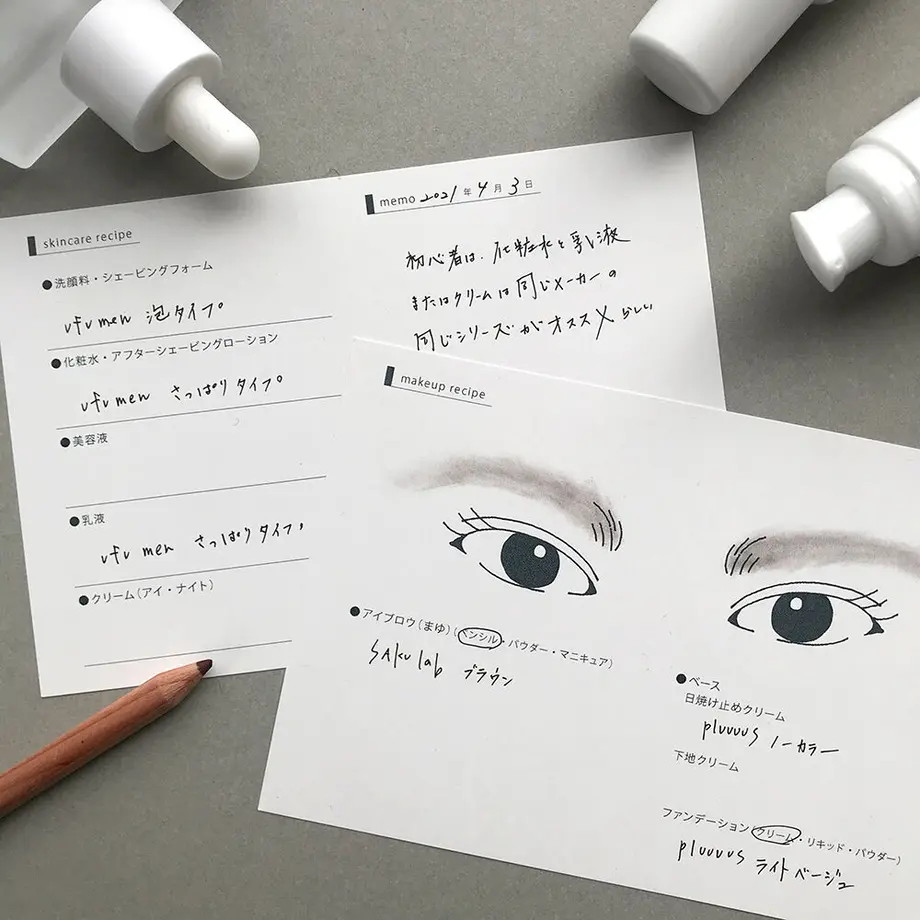 skincare recipe
●洗顔料・シェービングフォーム
vfv men 泡タイプ。
●化粧水・アフターシェービングローション
vfv men さっぱりタイプ。
●美容液
●乳液
vfv men さっぱりタイプ。
●クリーム(アイ・ナイト)
memo 2021年4月3日
初心者は、化粧水と乳液
またはクリームは同じメーカーの
同じシリーズがオススメらしい
makeup recipe
●アイブロウ(まゆ)(ペンシル・パウダー・マニキュア)
SAKu lab ブラウン
●ベース
日焼け止めクリーム
pluuuus ノーカラー
下地クリーム
ファンデーション(クリーム・リキッド・パウダー)
pluuuus ライトベージュ